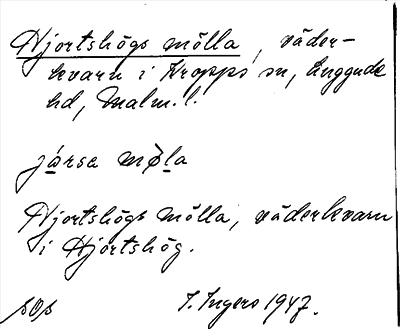 Hjortshögs mölla, väder-
kvarn i Kropps sn, Luggude
hd, Malm.l.
jårsa mø̀la
Hjortshögs mölla, väderkvarn
i Hjortshög.
I. Ingers 1947.